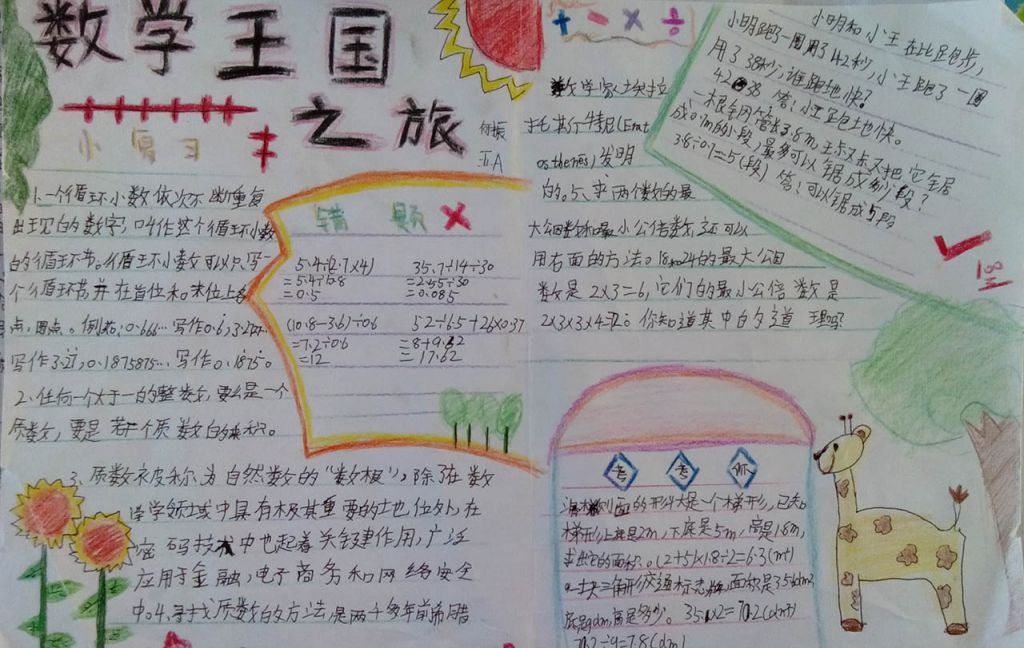 数学王国
之旅
小复习
五.A
1.一个循环小数依次不断重复
出现的数字,叫作这个循环小数
的循环节。循环小数可以只写一
个循环节并在首位和末位上各
点,圆点。例如:0.666…写作0.6,3.2727…
写作3.27,0.1875875…写作0.1875。
2、任何一个大于一的整数,要么是一个
质数,要是若干个质数的乘积。
3、质数被称为自然数的“数根”,除了在数
学领域中具有极其重要的地位外,在
密码技术中也起着关键作用,广泛
应用于金融,电子商务和网络安全
中。4、寻找质数的方法是两千多年前希腊
错题
5.4÷(2.7×4)
=5.4÷10.8
=0.5
35.7÷14÷30
=2.55÷30
=0.085
(10.8-3.6)÷0.6
=7.2÷0.6
=12
52÷6.5+26×0.37
=8+9.62
=17.62
+ - × ÷
数学家埃拉
托其尼(Erat
osthenes)发明
的。5、求两个数的最
大公因数和最小公倍数,还可以
用右面的方法。18和24的最大公因
数是2×3=6,它们的最小公倍数是
2×3×3×4=72。你知道其中的道理吗?
小明和小王在比赛跑步,
小明跑了一圈用了142秒,小王跑了一圈
用了38秒,谁跑地快?
答:小王跑地快。
一根钢管长3.5m,王叔叔又把它锯
成0.7m的小段,最多可以锯成多少段?
3.5÷0.7=5(段) 答:可以锯成5段
考考你
面的形状是一个梯形,已知
梯形上底是2m,下底是5m,高是1.8m,
求出它的面积。(2+5)×1.8÷2=6.3(m²)
一块三角形交通标志牌面积是35.1dm²
底是9dm,高是多少。 35.1×2=70.2(dm²)
70.2÷9=7.8(dm)